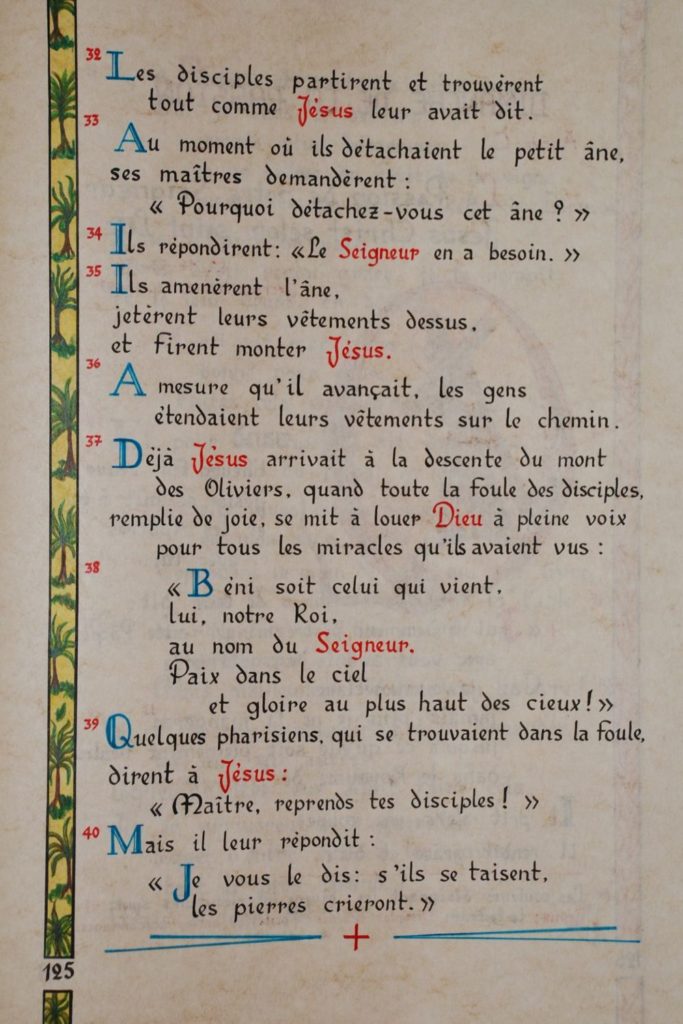 32 Les disciples partirent et trouvèrent
tout comme Jésus leur avait dit.
33 Au moment où ils détachaient le petit âne,
ses maîtres demandèrent :
« Pourquoi détachez-vous cet âne ? »
34 Ils répondirent: «Le Seigneur en a besoin. »
35 Ils amenèrent l'âne,
jetèrent leurs vêtements dessus,
et firent monter Jésus.
36 A mesure qu'il avançait, les gens
étendaient leurs vêtements sur le chemin.
37 Déjà Jésus arrivait à la descente du mont
des Oliviers, quand toute la foule des disciples,
remplie de joie, se mit à louer Dieu à pleine voix
pour tous les miracles qu'ils avaient vus :
38 « Béni soit celui qui vient,
lui, notre Roi,
au nom du Seigneur.
Paix dans le ciel
et gloire au plus haut des cieux! »
39 Quelques pharisiens, qui se trouvaient dans la foule,
dirent à Jésus :
« Maître, reprends tes disciples ! »
40 Mais il leur répondit :
« Je vous le dis: s'ils se taisent,
les pierres crieront. »
125